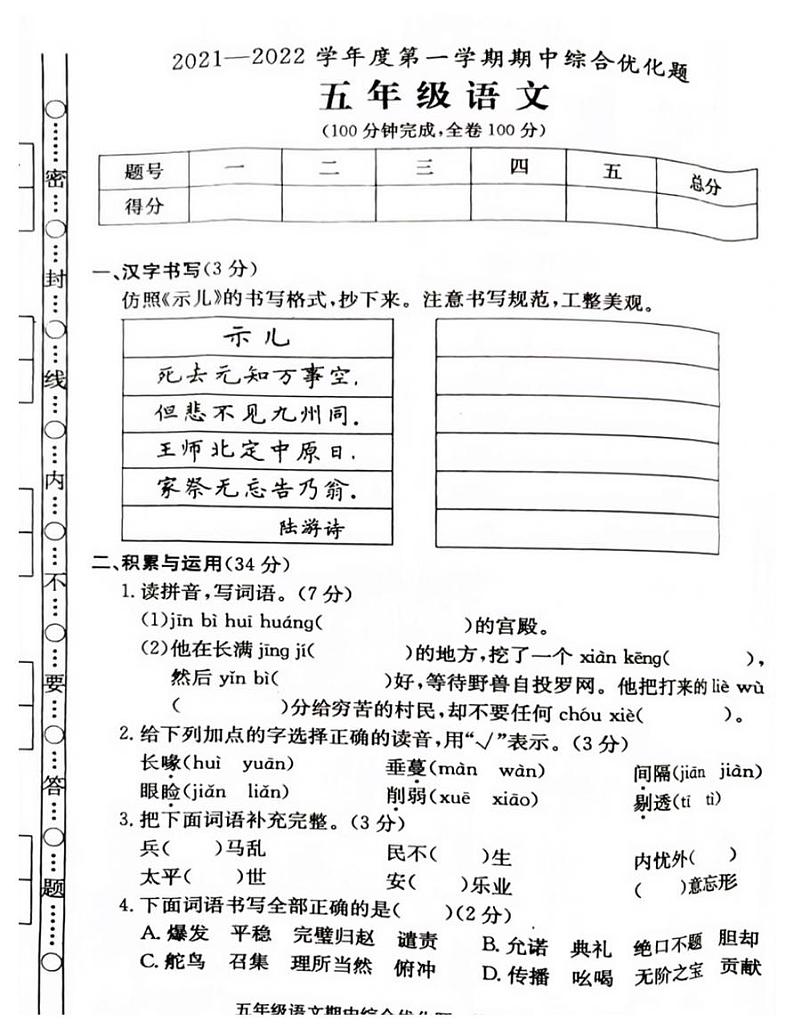 2021—2022 学年度第一学期期中综合优化题
五年级语文
(100 分钟完成,全卷 100 分)
题号 一 二 三 四 五 总分
得分
一、汉字书写(3 分)
仿照《示儿》的书写格式,抄下来。注意书写规范,工整美观。
示儿
死去元知万事空,
但悲不见九州同.
王师北定中原日,
家祭无忘告乃翁.
陆游诗
二、积累与运用(34 分)
1. 读拼音,写词语。(7 分)
(1)jīn bì huī huáng( )的宫殿。
(2)他在长满 jīng jí( )的地方,挖了一个 xiàn kēng( ),
然后 yǐn bì( )好,等待野兽自投罗网。他把打来的 liè wù
( )分给穷苦的村民,却不要任何 chóu xiè( )。
2. 给下列加点的字选择正确的读音,用“√”表示。(3 分)
长喙(huì yuān) 垂蔓(màn wàn) 间隔(jiān jiàn)
眼睑(jiǎn liǎn) 削弱(xuē xiāo) 剔透(tī tì)
3. 把下面词语补充完整。(3 分)
兵( )马乱 民不( )生 内忧外( )
太平( )世 安( )乐业 ( )意忘形
4. 下面词语书写全部正确的是( )(2 分)
A. 爆发 平稳 完璧归赵 谴责 B. 允诺 典礼 绝口不题 胆却
C. 舵鸟 召集 理所当然 俯冲 D. 传播 吆喝 无阶之宝 贡献
五年级语文期中综合优化题
○……密……○……封……○……线……○……内……○……不……○……要……○……答……○……题……○